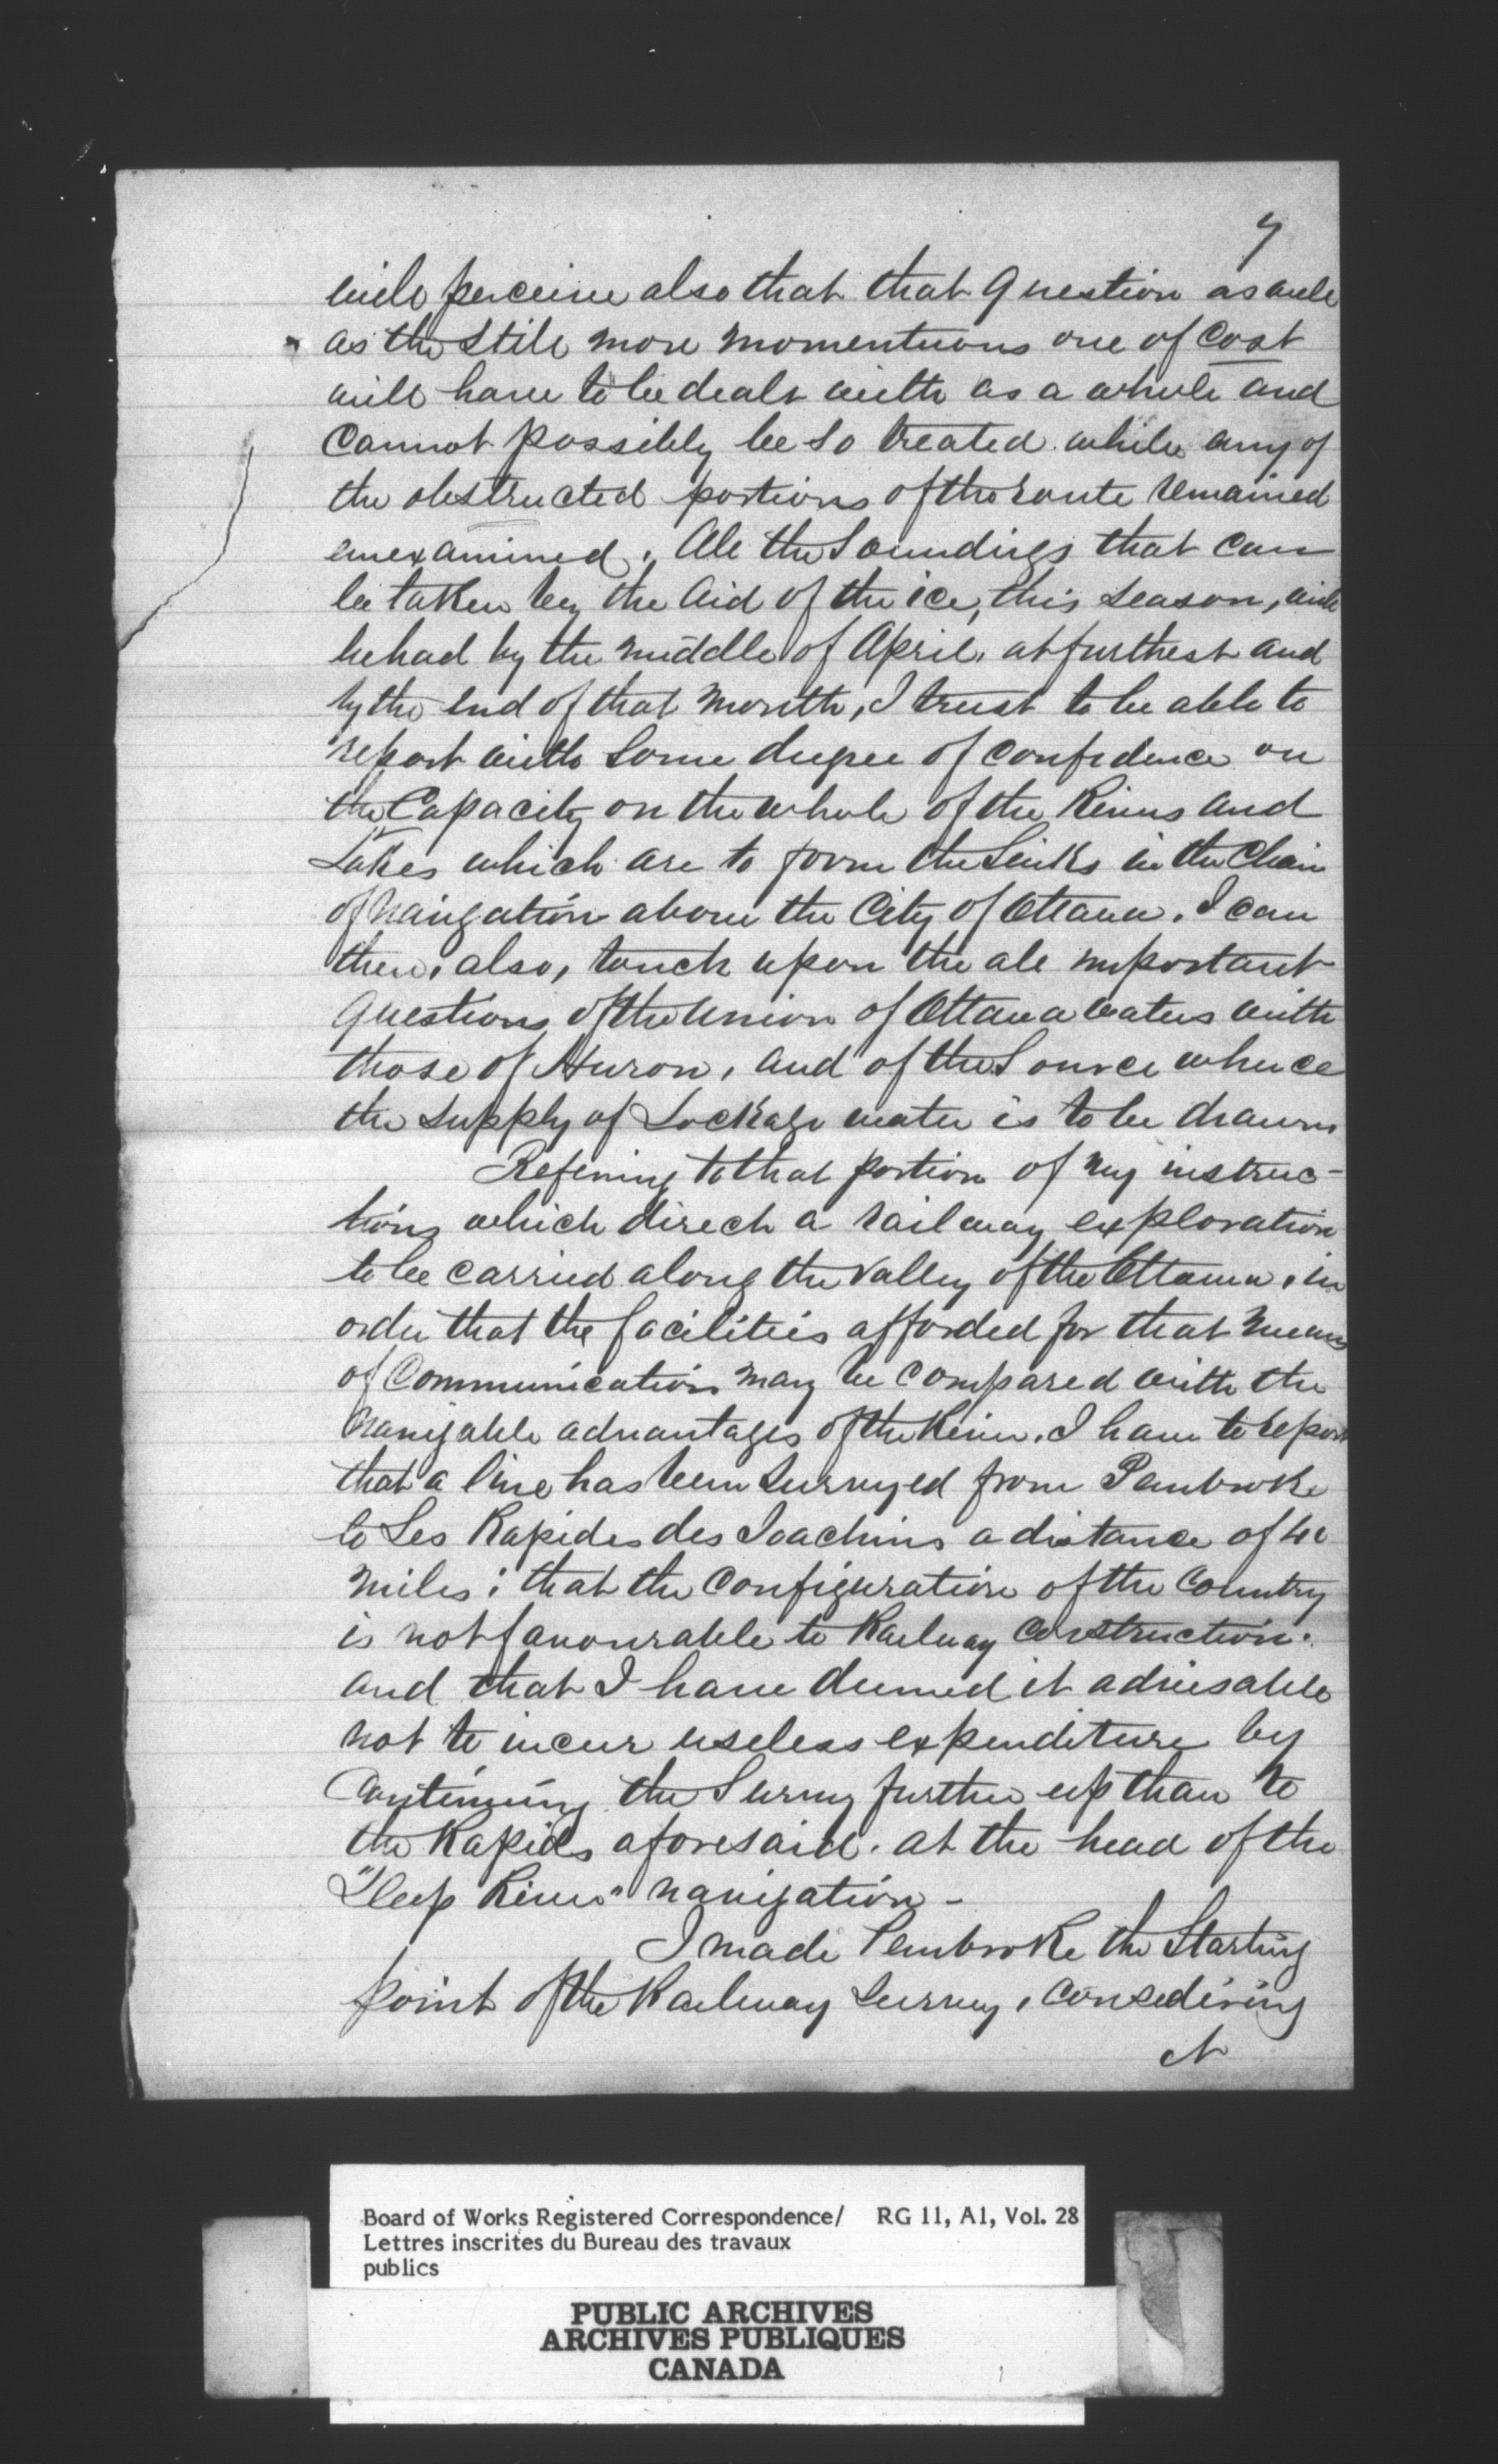 7
will perceive also that that question as well
as the still more momentuous one of cost
will have to be dealt with as a whole and
cannot possibly be so treated while any of
the obstructed portions of the route remained
unexamined. All the Soundings that can
be taken by the aid of the ice, this season, will
be had by the middle of April, at furthest and
by the end of that month, I trust to be able to
report with some degree of confidence on
the Capacity on the whole of the Rivers and
Lakes which are to form the Links in the Chain
of navigation above the City of Ottawa. I can
then, also, touch upon the all important
questions of the Union of Ottawa waters with
those of Huron, and of the Source whence
the supply of Lockage water is to be drawn
Refering to that portion of my instruc-
tions which direct a railway exploration
to be carried along the Valley of the Ottawa, in
order that the facilities afforded for that means
of Communication may be compared with the
navigable advantages of the River. I have to report
that a line has been surveyed from Pembroke
to Les Rapides des Joachins a distance of
miles: that the Configuration of the Country
is not favourable to Railway Construction.
and that I have deemed it adviesable
not to incur useless expenditure by
Continuing the Survey further up than to
the Rapids aforesaid. at the head of the
"Deep River" navigation -
I made Pembroke the Starting
point of the Railway Survey, considering
Board of Works Registered Correspondence/ RG 11, A1, Vol. 28
Lettres inscrites du Bureau des travaux
publics
PUBLIC ARCHIVES
ARCHIVES PUBLIQUES
CANADA